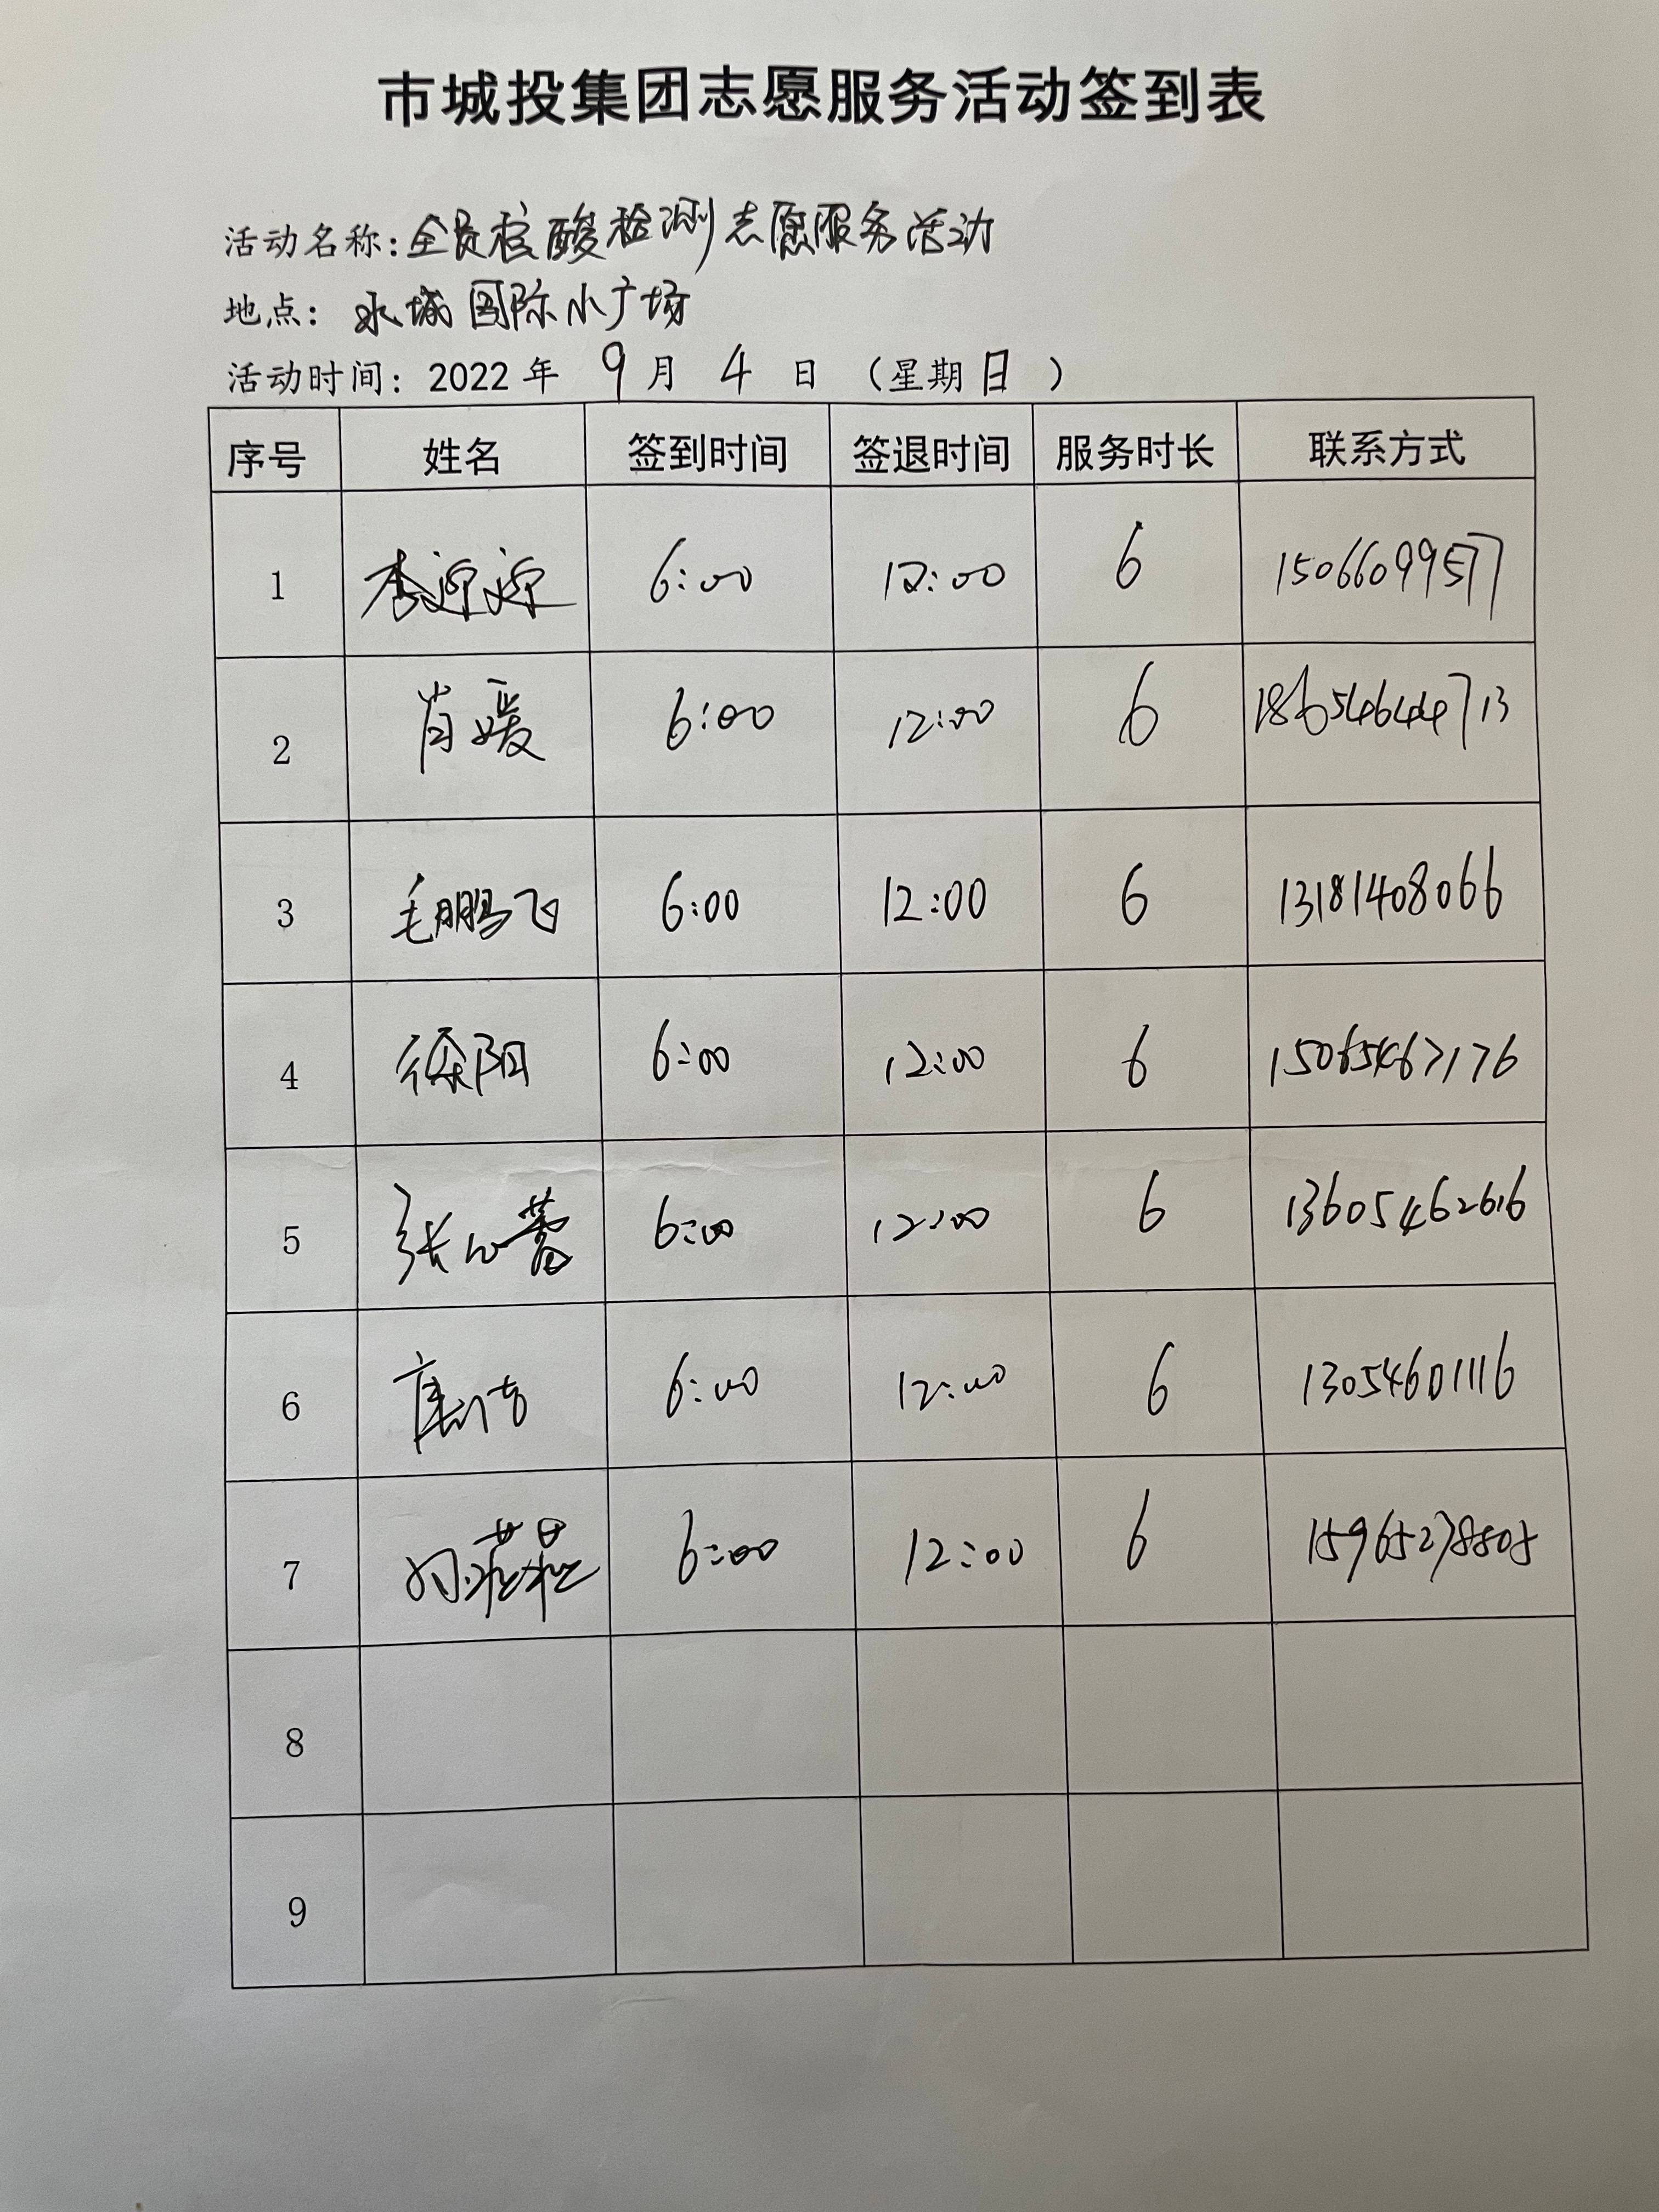 市城投集团志愿服务活动签到表
活动名称：全员核酸检测志愿服务活动
地点：水城国际小广场
活动时间：2022年 9月 4日（星期日）
序号 姓名 签到时间 签退时间 服务时长 联系方式
1 李迎迎 6:00 12:00 6 15066099577
2 肖媛 6:00 12:00 6 18654644713
3 毛鹏飞 6:00 12:00 6 13181408066
4 徐阳 6:00 12:00 6 15065467176
5 张心蕾 6:00 12:00 6 13605462616
6 6:00 12:00 6 13054601116
7 6:00 12:00 6 15965278805
8
9